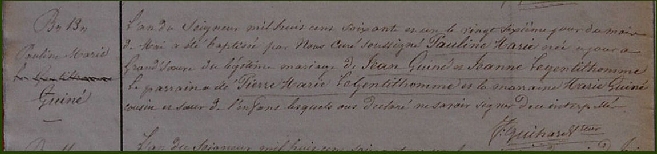 Bn 13
Pauline Marie
Guiné
L'an du Seigneur mil huit cent soixante et un le vingt sixième jour du mois
de Mai a été baptisée par Nous Curé soussigné Pauline Marie née ce jour à
du légitime mariage de Jean Guiné et Jeanne Legentilhomme
Le parrain a été Pierre Marie Legentilhomme et la marraine Marie Guiné
cousin et sœur de l'enfant lesquels ont déclaré ne savoir signer de ce interpellés
L'an du Seigneur mil huit cent soixante